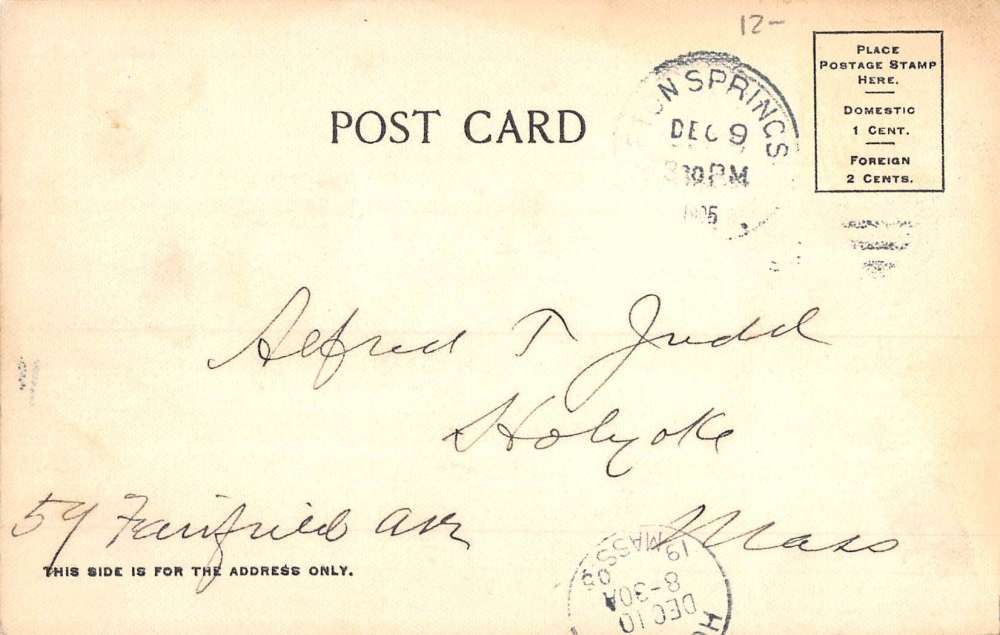 12-
PLACE
POSTAGE STAMP
HERE.
DOMESTIC
1 CENT.
FOREIGN
2 CENTS.
POST CARD
ON SPRINGS
DEC 9
30 PM
Alfred T Judd
Holyoke
59 Fairfield Ave
Mass
THIS SIDE IS FOR THE ADDRESS ONLY.
DEC 10
8-30A
19 05
MASS